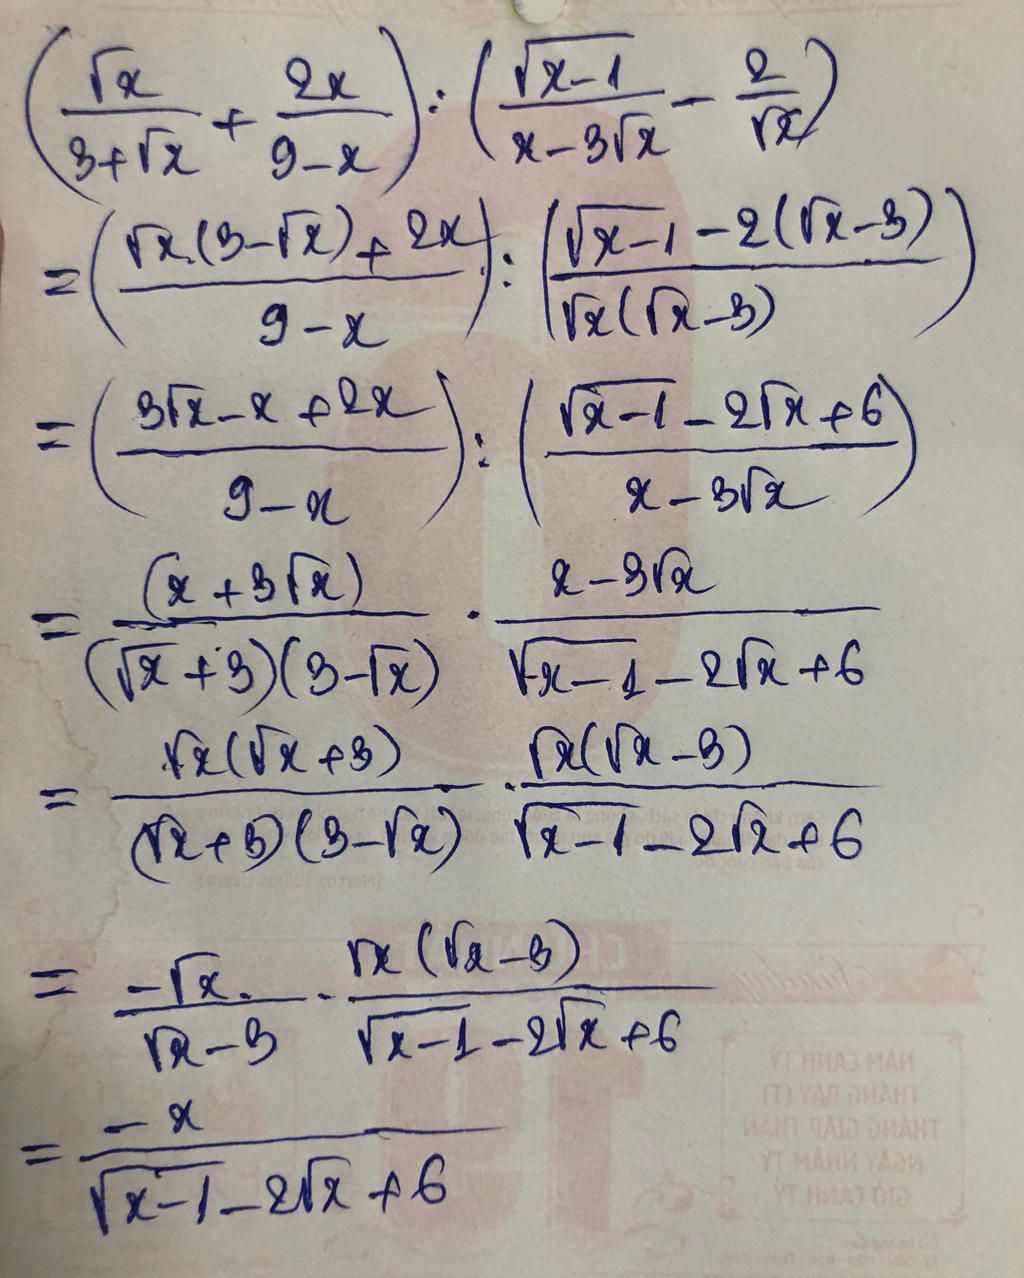 (√x/(3+√x) + 2x/(9-x)) : (√(x-1)/(x-3√x) - 2/√x)
= ((√x(3-√x)+2x)/(9-x)) : ((√(x-1)-2(√x-3))/(√x(√x-3)))
= ((3√x-x+2x)/(9-x)) : ((√(x-1)-2√x+6)/(x-3√x))
= (x+3√x)/((√x+3)(3-√x)) · (x-3√x)/(√(x-1)-2√x+6)
= √x(√x+3)/((√x+3)(3-√x)) · √x(√x-3)/(√(x-1)-2√x+6)
= -√x/(√x-3) · √x(√x-3)/(√(x-1)-2√x+6)
= -x/(√(x-1)-2√x+6)
NĂM CANH TÝ
THÁNG BẢY (T)
THÁNG GIÁP THÂN
NGÀY NHÂM TÝ
GIỜ CANH TÝ